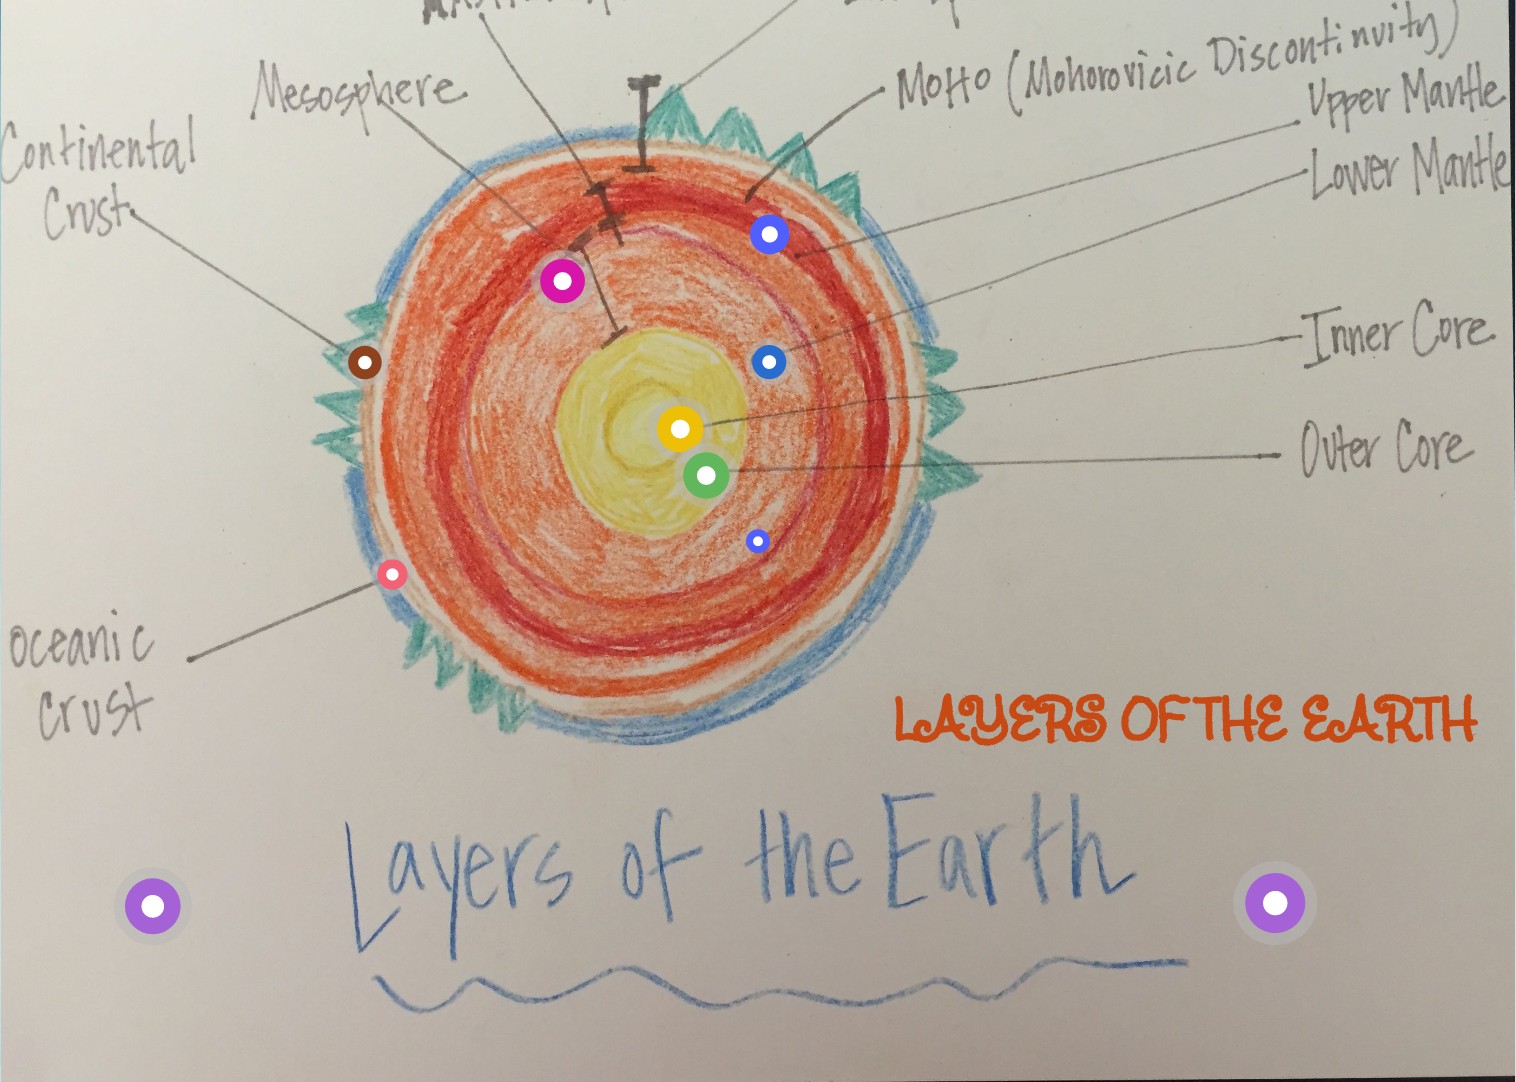 Mesosphere
MOHO (Mohorovicic Discontinuity)
Upper Mantle
Lower Mantle
Continental
Crust
Inner Core
Outer Core
Oceanic
Crust
LAYERS OF THE EARTH
Layers of the Earth